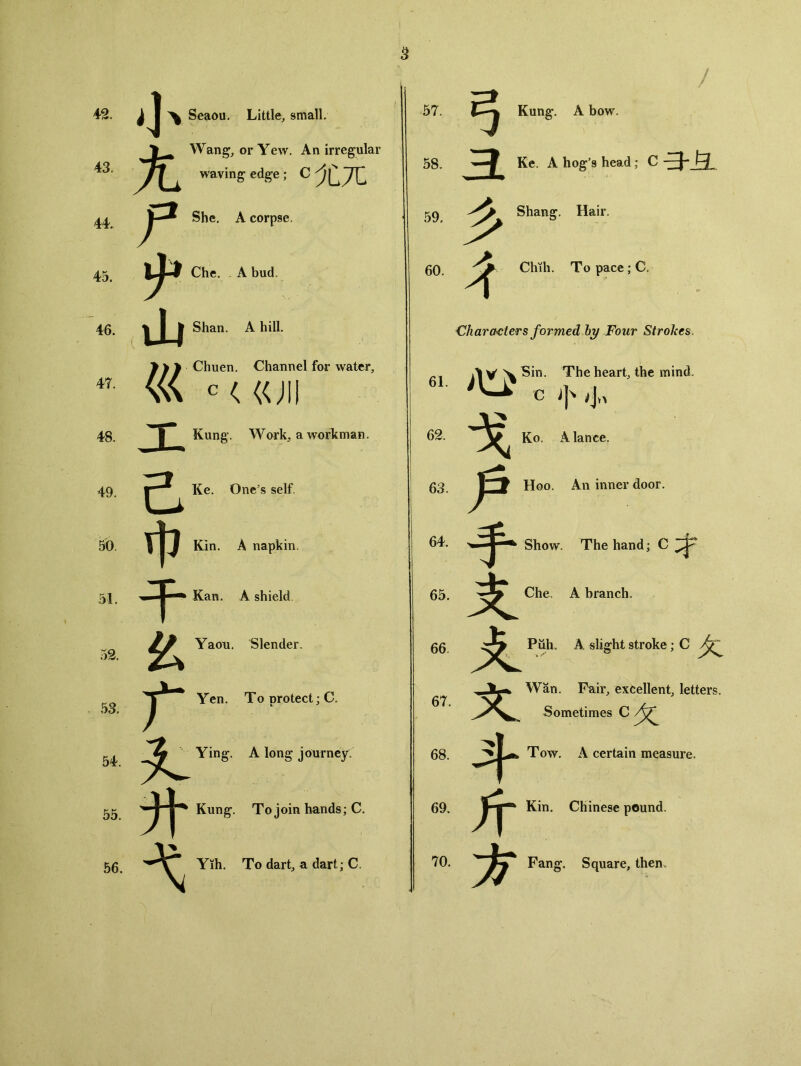 3
42. 小 Seaou. Little, small.
43. 尢 Wang, or Yew. An irregular
waving edge; C 尣 兀
44. 尸 She. A corpse.
45. 屮 Che. A bud.
46. 山 Shan. A hill.
47. 巛 Chuen. Channel for water,
C 𡿨 巜 川
48. 工 Kung. Work, a workman.
49. 己 Ke. One's self.
50. 巾 Kin. A napkin.
51. 干 Kan. A shield.
52. 幺 Yaou. Slender.
53. 广 Yen. To protect; C.
54. 廴 Ying. A long journey.
55. 廾 Kung. To join hands; C.
56. 弋 Yĭh. To dart, a dart; C.
57. 弓 Kung. A bow.
58. 彐 Ke. A hog's head; C 彑
59. 彡 Shang. Hair.
60. 彳 Chĭh. To pace; C.
Characters formed by Four Strokes.
61. 心 Sin. The heart, the mind.
C 忄 㣺
62. 戈 Ko. A lance.
63. 戶 Hoo. An inner door.
64. 手 Show. The hand; C 扌
65. 支 Che. A branch.
66. 攴 Pŭh. A slight stroke; C 攵
67. 文 Wăn. Fair, excellent, letters.
Sometimes C 攵
68. 斗 Tow. A certain measure.
69. 斤 Kin. Chinese pound.
70. 方 Fang. Square, then.